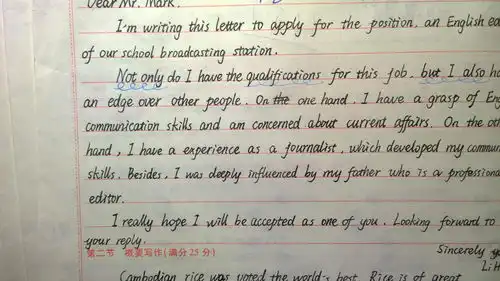 Dear Mr. Mark.
I'm writing this letter to apply for the position, an English
of our school broadcasting station.
Not only do I have the qualifications for this job, but I also
an edge over other people. On the one hand, I have a grasp of
communication skills and am concerned about current affairs. On the
hand, I have a experience as a journalist, which developed my
skills. Besides, I was deeply influenced by my father who is a
editor.
I really hope I will be accepted as one of you. Looking forward to
your reply.
第二节 概要写作(满分25分)
Sincerely
Cambodian rice was voted the world's best. Rice is of great